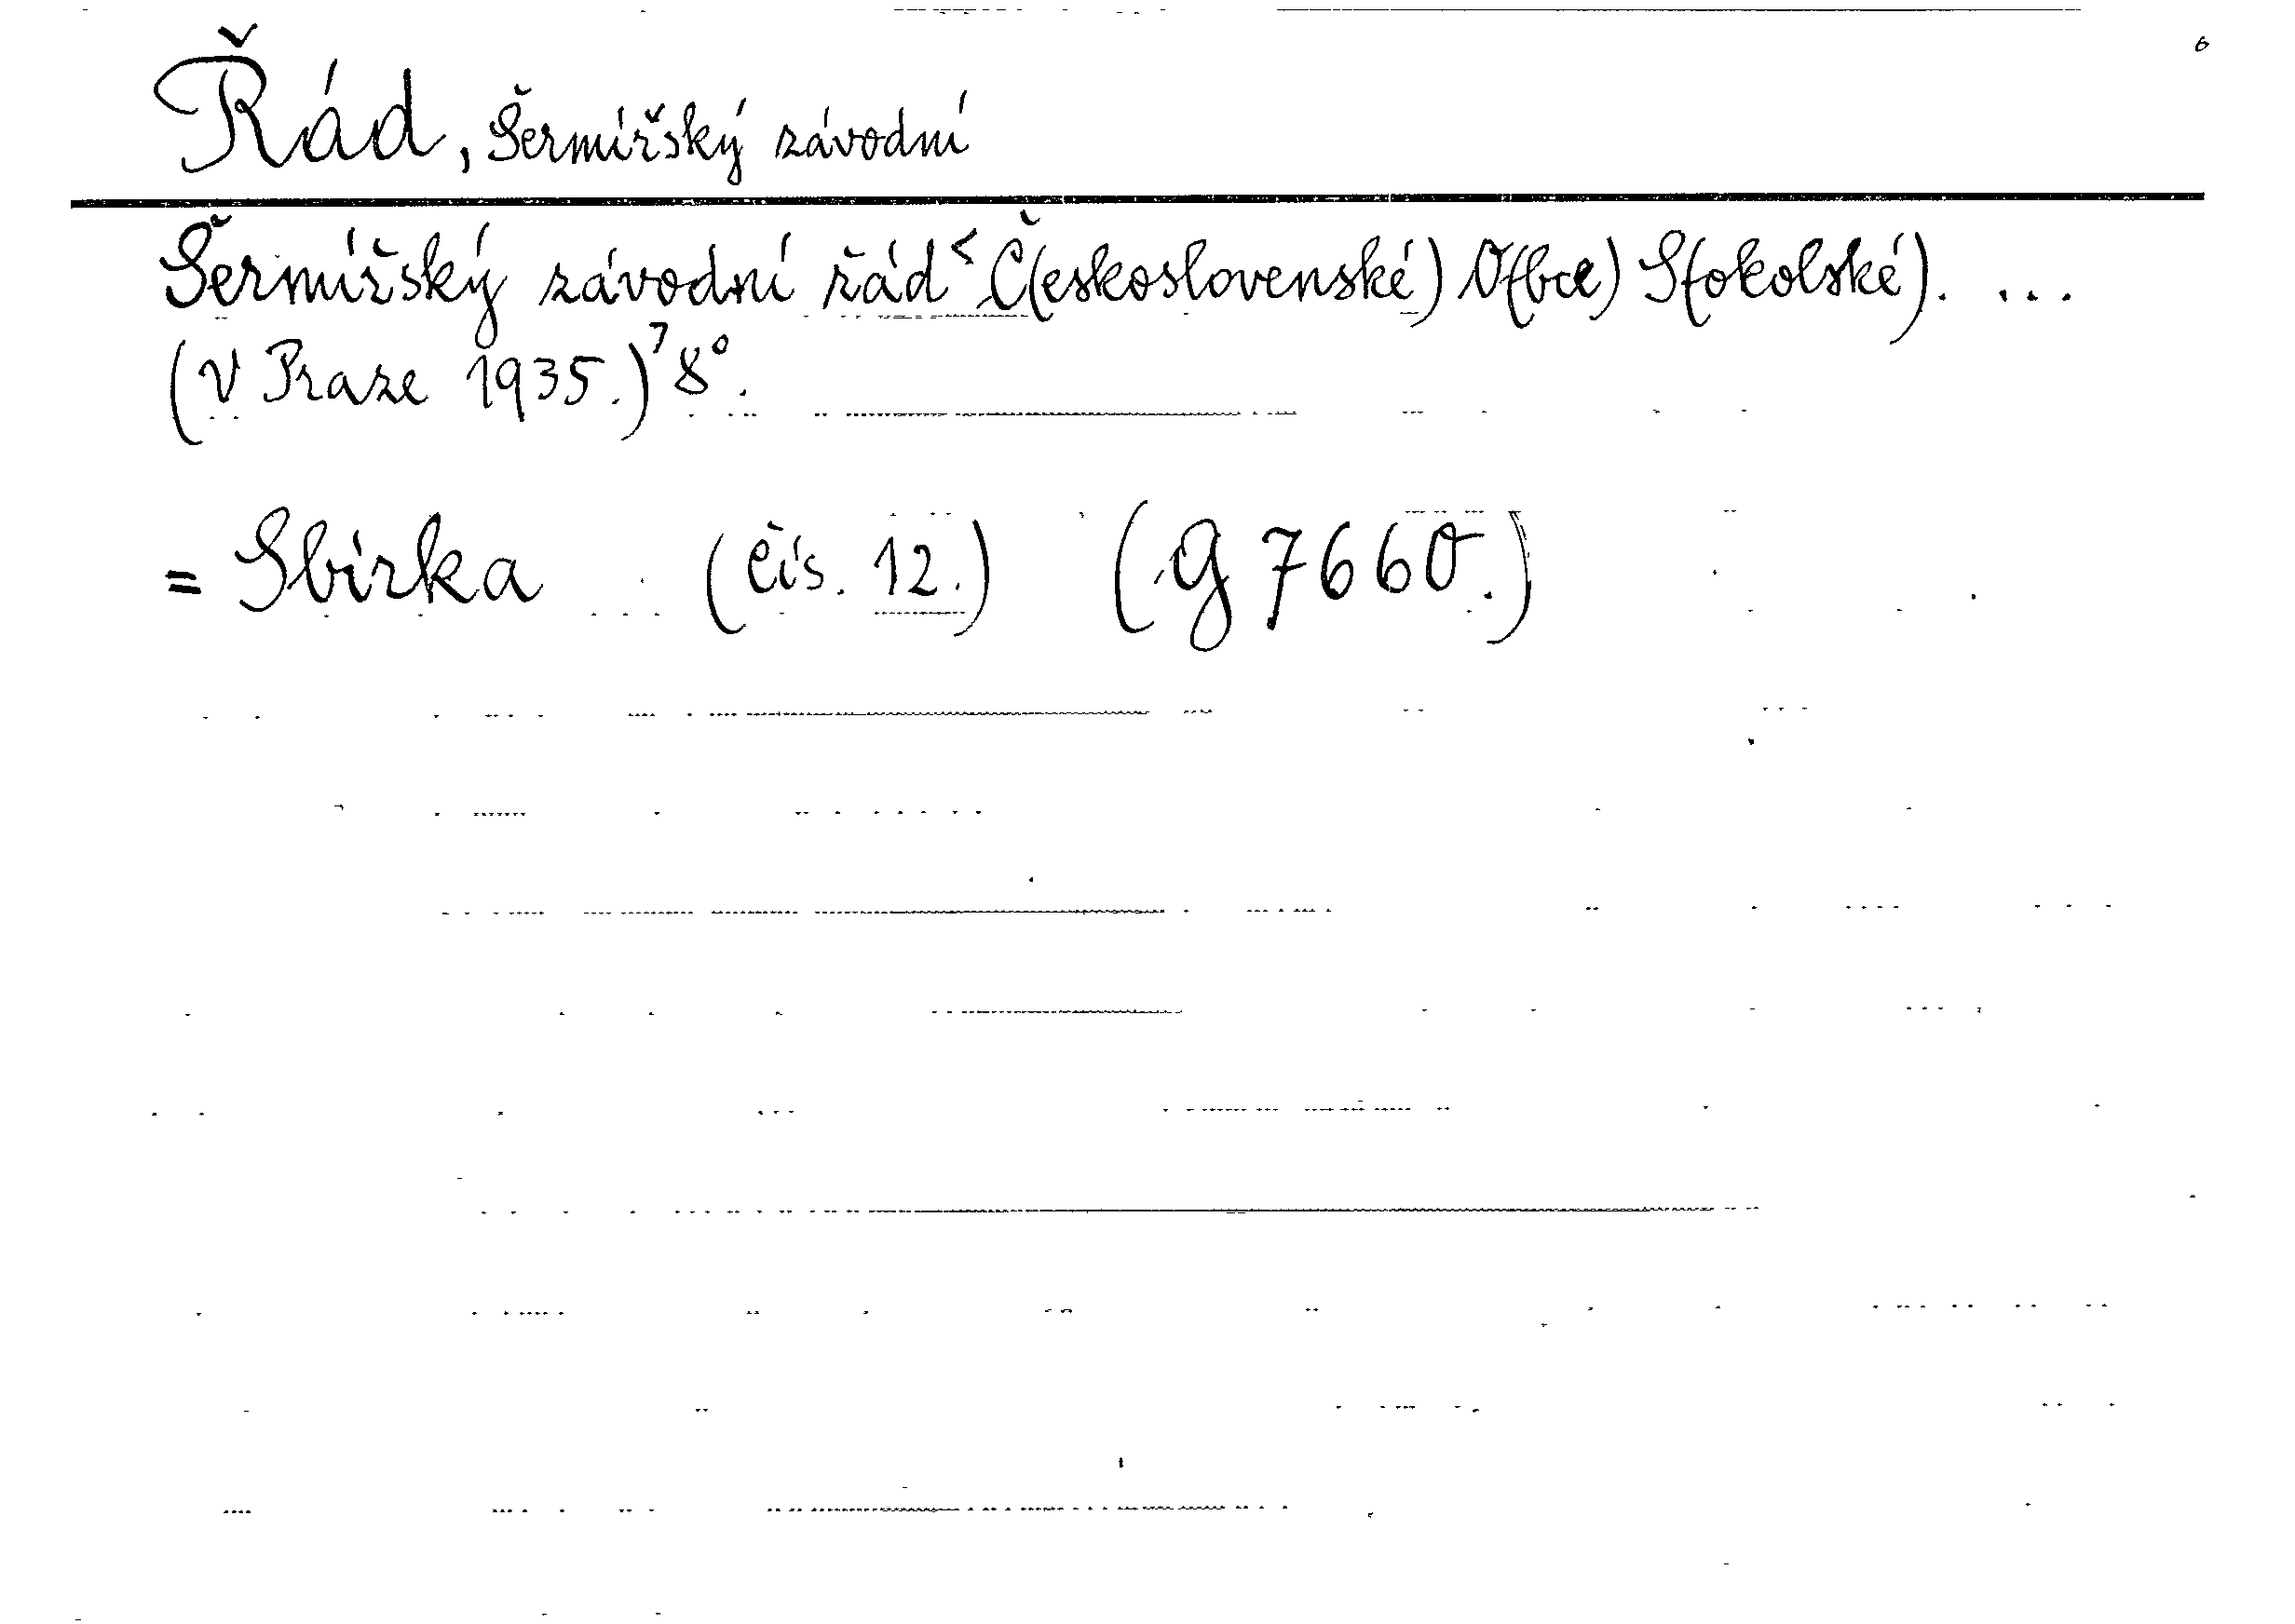 6
Řád, šermířský závodní
Šermířský závodní řád < Č(eskoslovenské) O(bce) S(okolské). ...
(V Praze 1935.)⁷ 8⁰.
= Sbírka (čís. 12.) (G 7660.)